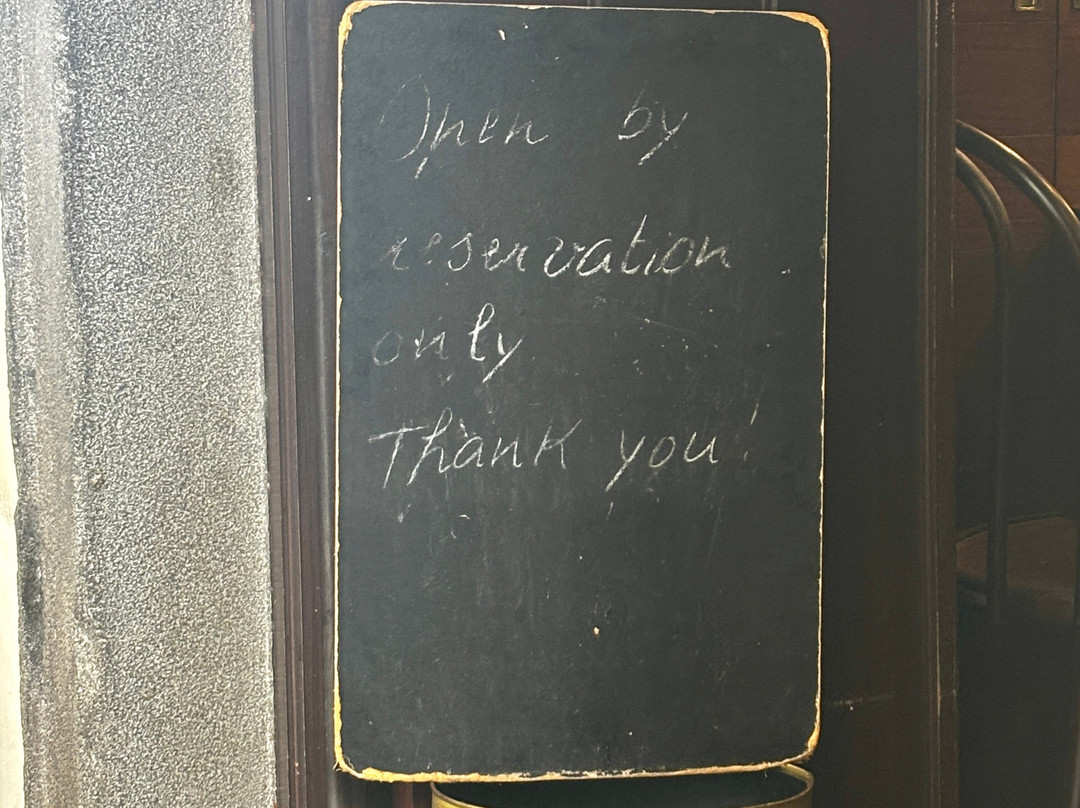 Open by
reservation
only
Thank you!